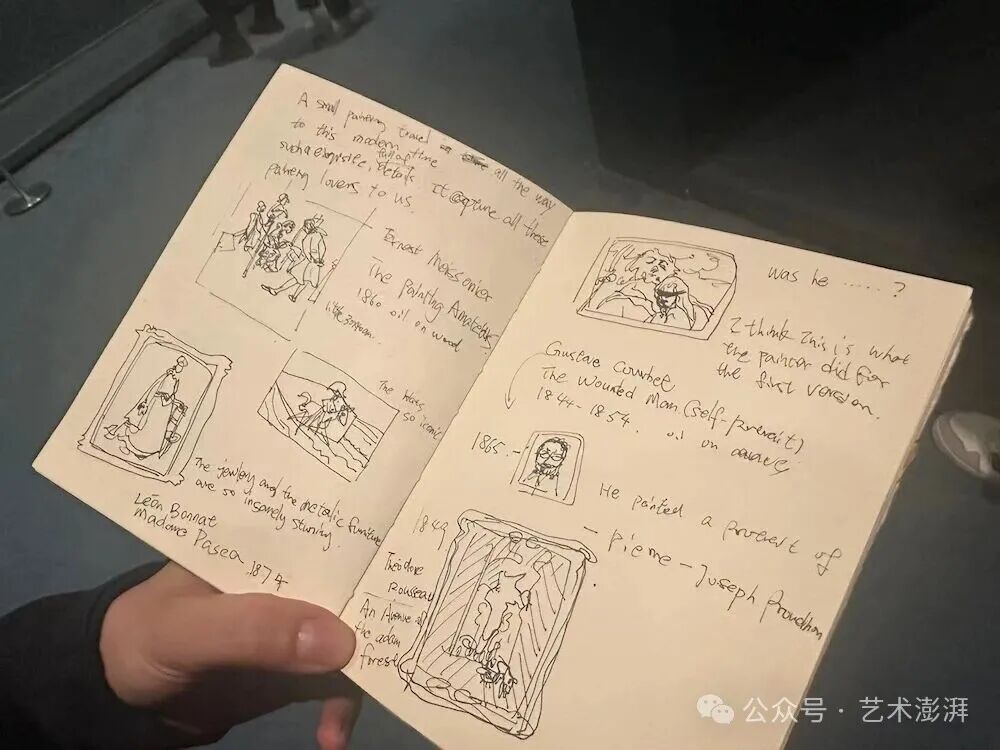 A small painting travel all the way
to this modern time
such a exquisite, full of details. It capture all these
painting lovers to us.
Ernest Meissonier
The Painting Amateurs
1860 oil on wood
The
so iconic
The jewlery and the metalic furniture
are so insanely stunning.
Léon Bonnat
Madame Pasca
1874
was he ..... ?
I think this is what
the painter did for
the first version.
Gustave Courbet
The Wounded Man (self-portrait)
1844-1854. oil on
1865. -
He painted a protrert of
- Pierre-Joseph Proudhon
1849
Theodore
Rousseau
An Avenue of
the adam
forest
公众号 · 艺术澎湃